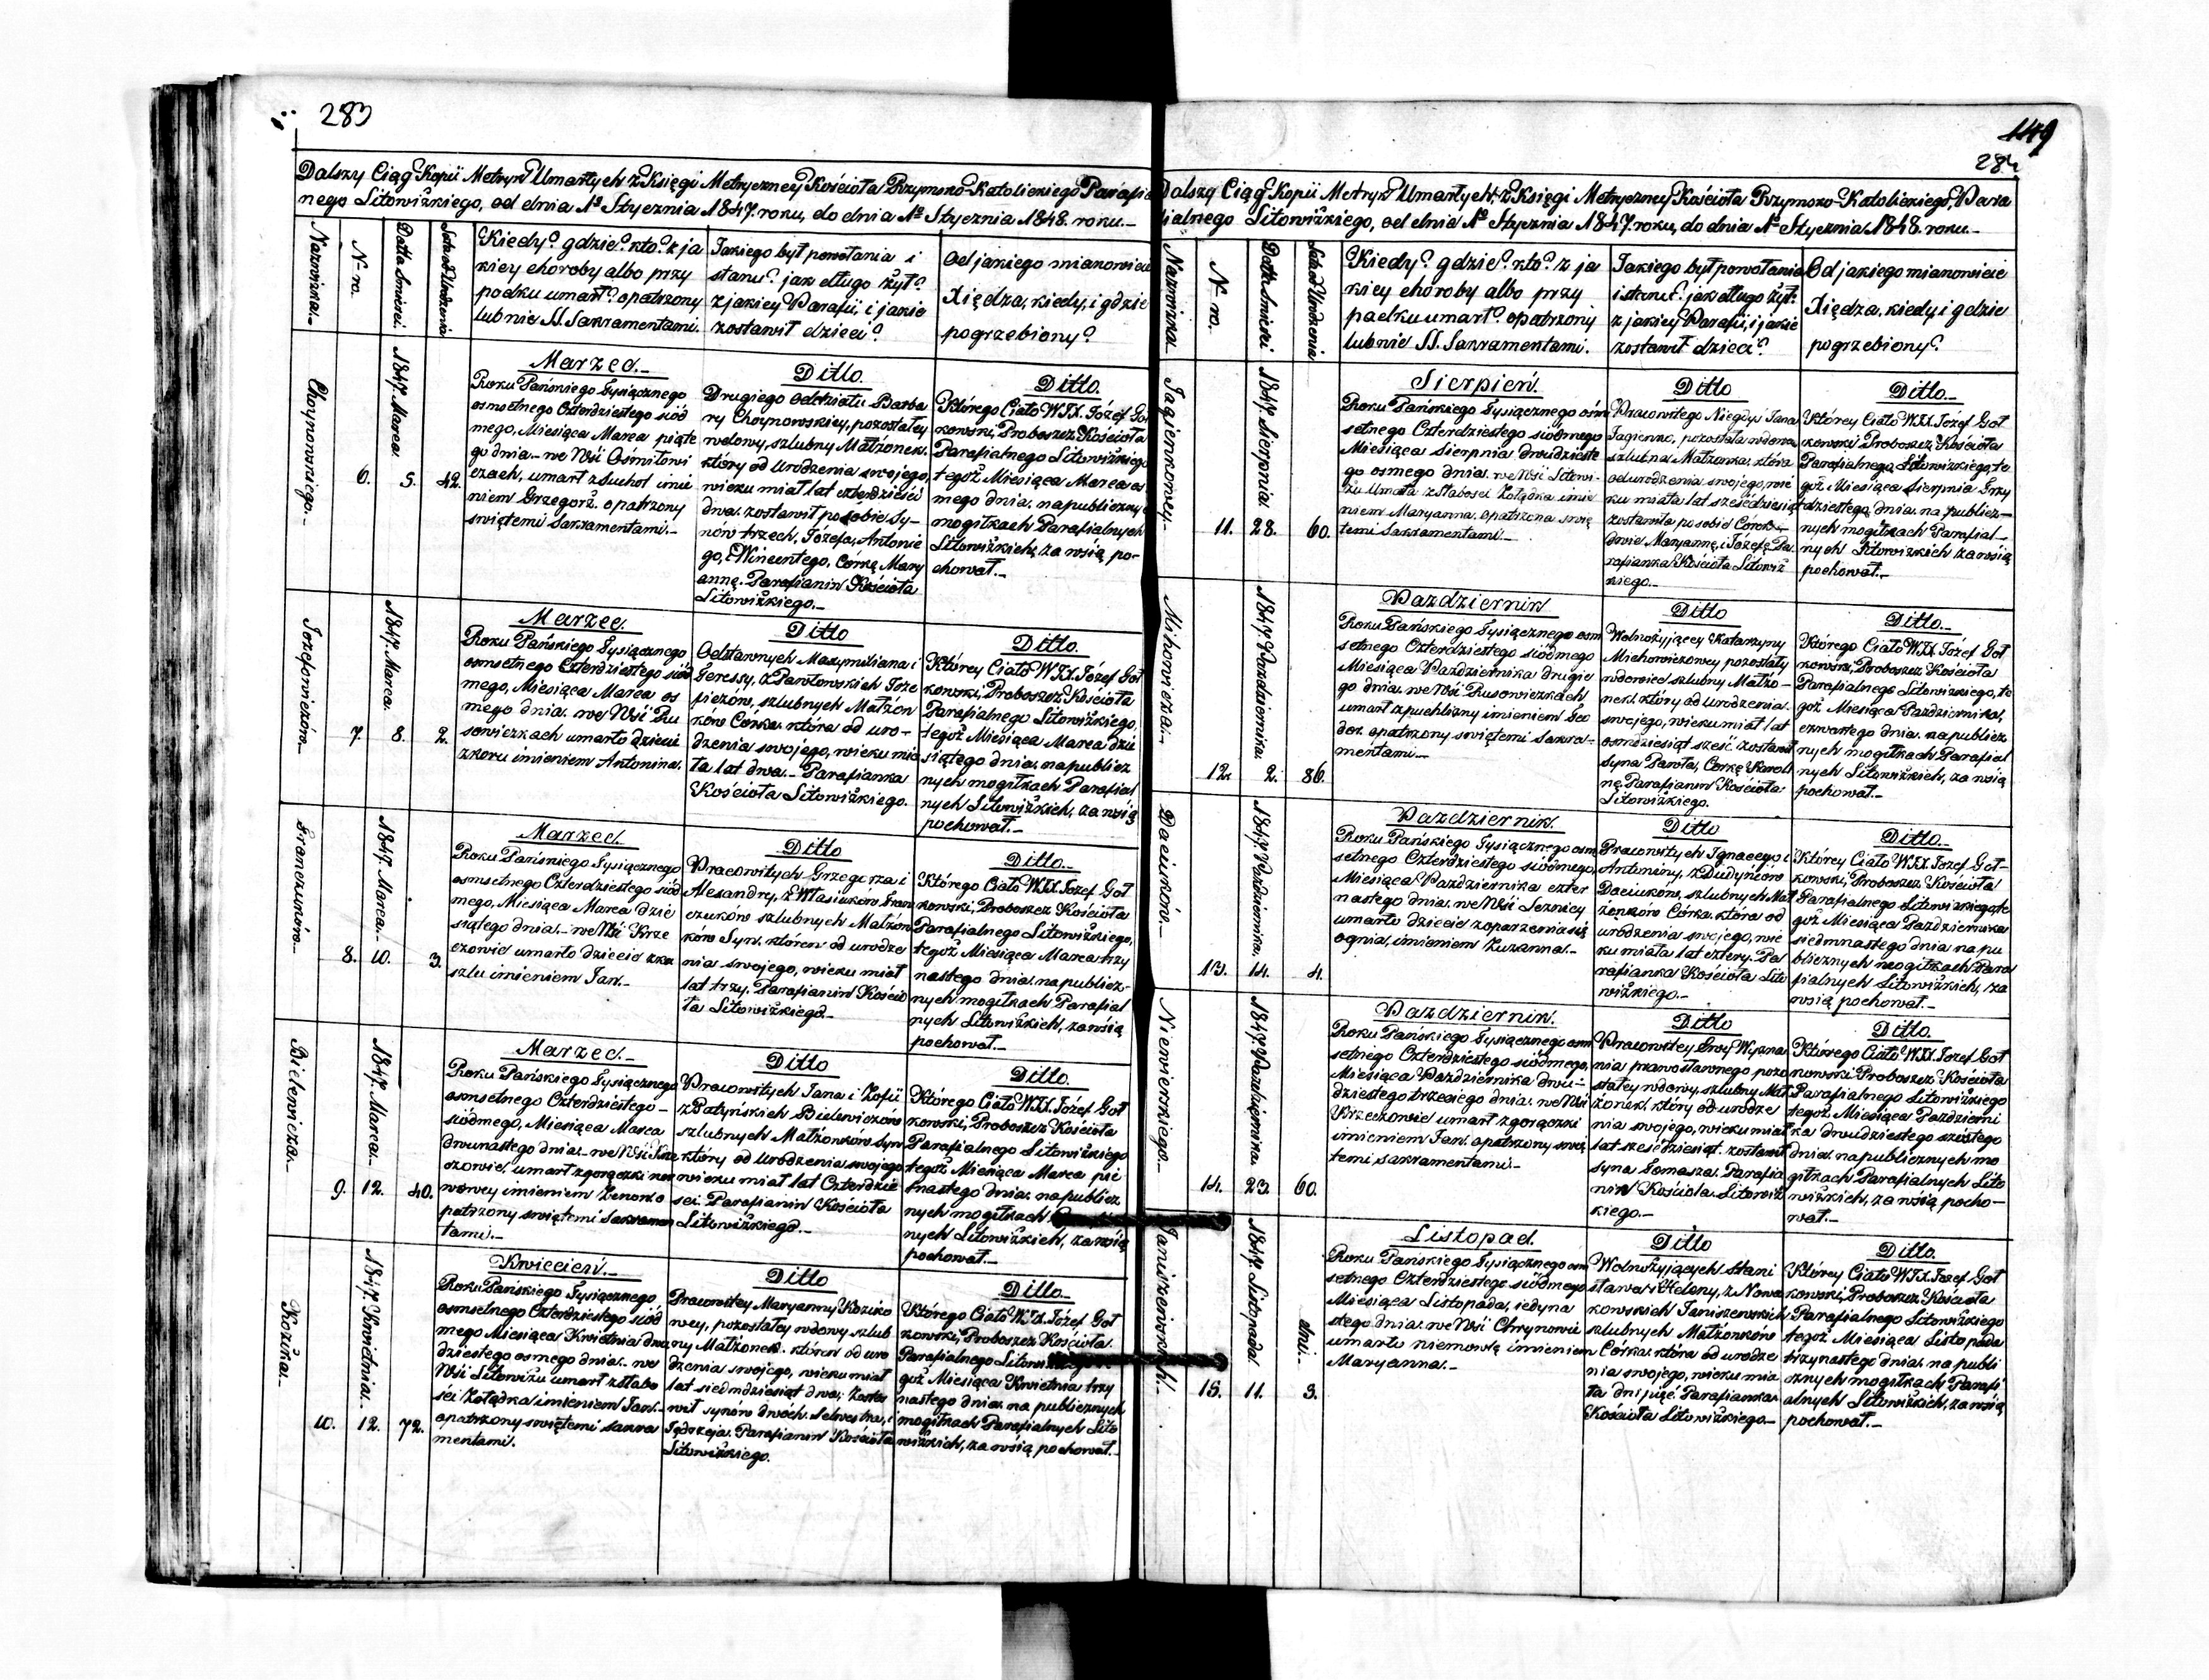 283
Dalszy Ciąg Kopii Metryk Umarłych z Księgi Metryczney Kościoła Rzymsko-Katolickiego Parafia
nego Litowizkiego, od dnia 1º Stycznia 1847. roku, do dnia 1º Stycznia 1848. roku.-
Nazwiska.-
N-ro.
Datta Śmierci.
Lata od Urodzenia
Kiedy? gdzie? kto? z ja
kiey choroby albo przy
padku umarł? opatrzony
lub nie SS. Sakramentami.
Jakiego był powołania i
stanu? jak długo żył?
z jakiey Parafii, i jakie
zostawił dzieci?
Od jakiego mianowicie
Xiędza, kiedy, i gdzie
pogrzebiony?
Choynowskiego.-
6.
1847. Marca.
5.
42.
Marzec.-
Roku Pańskiego Tysiącznego
osmsetnego Czterdziestego siód
mego, Miesiąca Marca piąte
go dnia.- we Wsi Ośmiłowi
czach, umarł z suchot imie
niem Grzegorz. opatrzony
swiętemi Sakramentami.-
Ditto.
Drugiego oddziału Barba
ry Choynowskiey, pozostałey
wdowy, szlubny Małżonek.
który od urodzenia swojego,
wieku miał lat czterdzieści
dwa. zostawił po sobie Sy-
nów trzech, Józefa, Antonie
go, i Wincentego, Córkę Mary
annę. Parafianin Kościoła
Litowizkiego.-
Ditto.
Którego Ciało WJX. Józef Goł
kowski, Proboszcz Kościoła
Parafialnego Litowizkiego
tegoż Miesiąca Marca os
mego dnia. na publicznych
mogiłkach Parafialnych
Litowizkich, za wsią po-
chował.-
Jozefowiczów.-
7.
1847. Marca.
8.
2.
Marzec.
Roku Pańskiego Tysiącznego
osmsetnego Czterdziestego siód
mego, Miesiąca Marca os
mego dnia. we Wsi Ru
sowiczkach umarło dziecie
z koru imieniem Antonina.
Ditto
Odstawnych Maxymiliana i
Teressy, z Pawłowskich Joze
fiezów, szlubnych Małżon
ków Córka. która od uro-
dzenia swojego, wieku mia
ła lat dwa.- Parafianka
Kościoła Litowizkiego.
Ditto.
Którey Ciało WJX. Józef Goł
kowski, Proboszcz Kościoła
Parafialnego Litowizkiego,
tegoż Miesiąca Marca dzie
siątego dnia. na publicz
nych mogiłkach Parafial
nych Litowizkich, za wsią
pochował.-
Franczuków.-
8.
1847. Marca.-
10.
3.
Marzec.
Roku Pańskiego Tysiącznego
osmsetnego Czterdziestego siód
mego, Miesiąca Marca dzie
siątego dnia.- we Wsi Krze
czowie umarło dziecie z ka
szlu imieniem Jan.-
Ditto
Pracowitych Grzegorza i
Alexandry, z Własiuków Fran
czuków szlubnych Małżon
ków Syn. któren od urodze
nia swojego, wieku miał
lat trzy. Parafianin Kościo
ła Litowizkiego.-
Ditto.-
Którego Ciało WJX. Józef Goł
kowski, Proboszcz Kościoła
Parafialnego Litowizkiego,
tegoż Miesiąca Marca trzy
nastego dnia. na publicz-
nych mogiłkach Parafial
nych Litowizkich, za wsią
pochował.-
Bielewicza.-
9.
1847. Marca.-
12.
40.
Marzec.-
Roku Pańskiego Tysiącznego
osmsetnego Czterdziestego-
siódmego, Miesiąca Marca
dwunastego dnia.- we Wsi Krze
czowie, umarł z gorączki ner
wowey imieniem Zenon o
patrzony swiętemi Sakramen
tami.-
Ditto
Pracowitych Jana i Zofii
z Batyńskich Bielewiczów
szlubnych Małżonków Syn
który od urodzenia swojego
wieku miał lat Czterdzie
sci. Parafianin Kościoła
Litowizkiego.-
Ditto.
Którego Ciało WJX. Józef Goł
kowski, Proboszcz Kościoła
Parafialnego Litowizkiego
tegoż Miesiąca Marca pie
tnastego dnia. na publicz
nych mogiłkach
nych Litowizkich, za wsią
pochował.-
Kozika.-
10.
1847. Kwietnia.-
12.
72.
Kwiecień.-
Roku Pańskiego Tysiącznego
osmsetnego Czterdziestego siód
mego Miesiąca Kwietnia dwu
dziestego osmego dnia. we
Wsi Litowizu umarł z słabo
sci Żołądka imieniem Jan.-
opatrzony swiętemi Sakra
mentami.
Ditto
Pracowitey Maryanny Koziko
wey, pozostałey wdowy szlub
ny Małżonek. któren od uro
dzenia swojego, wieku miał
lat siedmdziesiąt dwa; zosta
wił synów dwóch. Selwestra, i
Jędrzeja. Parafianin Kościoła
Litowizkiego.
Ditto.
Którego Ciało WJX. Józef Goł
kowski, Proboszcz Kościoła
Parafialnego
goż Miesiąca Kwietnia trzy
nastego dnia. na publicznych
mogiłkach Parafialnych Lito
wizkich, za wsią pochował.-
149
284
Dalszy Ciąg Kopii Metryk Umarłych, z Księgi Metryczney Kościoła Rzymsko-Katolickiego, Para
fialnego Litowizkiego, od dnia 1º Stycznia 1847. roku, do dnia 1º Stycznia 1848. roku.-
Nazwiska.-
N-ro.
Datta Śmierci
Lata od Urodzenia
Kiedy? gdzie? kto? z ja
kiey choroby albo przy
padku umarł? opatrzony
lub nie SS. Sakramentami.
Jakiego był powołania
i stanu? jak długo żył?
z jakiey Parafii, i jakie
zostawił dzieci?
Od jakiego mianowicie
Xiędza, kiedy i gdzie
pogrzebiony?
Jagienkowey.-
11.
1847. Sierpnia.
28.
60.
Sierpień.
Roku Pańskiego Tysiącznego ośm
setnego Czterdziestego siódmego
Miesiąca Sierpnia dwudzieste
go osmego dnia. we Wsi Litowi-
żu umarła z słabosci Żołądka imie
niem Maryanna. opatrzona swię
temi Sakramentami.-
Ditto
Pracowitego Niegdys Jana
Jagienko, pozostała wdowa
szlubna Małżonka. która
od urodzenia swojego, wie
ku miała lat sześćdziesiąt
zostawiła po sobie Córek-
dwie Maryannę, i Józefę. Pa-
rafianka Kościoła Litowiz
kiego.-
Ditto.-
Którey Ciało WJX. Józef Goł
kowski Proboszcz Kościoła
Parafialnego, Litowizkiego, te
goż Miesiąca Sierpnia trzy
dziestego dnia. na publicz-
nych mogiłkach Parafial-
nych Litowizkich za wsią
pochował.-
Mihowicza.-
12.
1847. Pazdziernika.
2.
86.
Pazdziernik
Roku Pańskiego Tysiącznego osm
setnego Czterdziestego siódmego
Miesiąca Pazdziernika drugie
go dnia. we Wsi Rusowiczkach
umarł z puchlizny imieniem Teo
dor. opatrzony swiętemi Sakra-
mentami.-
Ditto
Wolnożyjącey Katarzyny
Michowiczowey pozostały
wdowiec szlubny Małżo-
nek. który od urodzenia.
swojego, wieku miał lat
osmdziesiąt sześć zostawił
syna Pawła, Corkę Karoli
nę. Parafianin Kościoła
Litowizkiego.
Ditto.-
Którego Ciało WJX. Józef Goł
kowski, Proboszcz Kościoła
Parafialnego Litowizkiego, te
goż Miesiąca Pazdziernika,
czwartego dnia. na publicz
nych mogiłkach Parafial
nych Litowizkich, za wsią
pochował.-
Daciuków.-
13.
1847. Pazdziernika.
14.
4.
Pazdziernik.
Roku Pańskiego Tysiącznego osm
setnego Czterdziestego siódmego,
Miesiąca Pazdziernika czter
nastego dnia. we Wsi Leznicy
umarło dziecie z oparzenia się
ognia, imieniem Zuzanna.-
Ditto
Pracowitych Ignacego i
Antoniny, z Dudyniów
Daciuków, szlubnych Mał
żonków Córka. która od
urodzenia swojego, wie
ku miała lat cztery. Pa
rafianka Kościoła Lito
wizkiego.-
Ditto.-
Którey Ciało WJX. Józef Goł-
kowski, Proboszcz Kościoła
Parafialnego Litowizkiego, te
goż Miesiąca Pazdziernika
siedmnastego dnia na pu
blicznych mogiłkach Para
fialnych Litowizkich, za
wsią pochował.-
Niewierskiego.-
14.
1847. Pazdziernika.
23.
60.
Pazdziernik.
Roku Pańskiego Tysiącznego osm
setnego Czterdziestego siódmego,
Miesiąca Pazdziernika dwu-
dziestego trzeciego dnia. we Wsi
Krzeczowie umarł z gorączki
imieniem Jan. opatrzony swię
temi Sakramentami.-
Ditto
Pracowitey Ewy Wyzna
nia prawosławnego pozo
stałey wdowy, szlubny Mał
żonek. który od urodze
nia swojego, wieku miał
lat sześćdziesiąt. zostawił
syna Tomasza. Parafia
nin Kościoła Litowiz
kiego.-
Ditto.
Którego Ciało WJX. Józef Goł
kowski Proboszcz Kościoła
Parafialnego Litowizkiego
tegoż Miesiąca Pazdzierni
ka dwudziestego szóstego
dnia. na publicznych mo
giłkach Parafialnych Lito
wizkich, za wsią pocho-
wał.-
Janiszewskich.-
15.
1847. Listopada.
11.
dni.-
3.
Listopad.
Roku Pańskiego Tysiącznego osm
setnego Czterdziestego siódmego
Miesiąca Listopada, iedyna
stego dnia. we Wsi Chrynowie
umarło niemowlę imieniem
Maryanna.-
Ditto
Wolnożyjących Stani
sława i Heleny, z Nowa
kowskich Janiszewskich
szlubnych Małżonków
Córka. która od urodze
nia swojego, wieku mia
ła dni pięć Parafianka
Kościoła Litowizkiego.-
Ditto.
Którey Ciało WJX. Józef Goł
kowski, Proboszcz Kościoła
Parafialnego Litowizkiego
tegoż Miesiąca Listopada
trzynastego dnia. na publi
cznych mogiłkach Parafi
alnych Litowizkich, za wsią
pochował.-